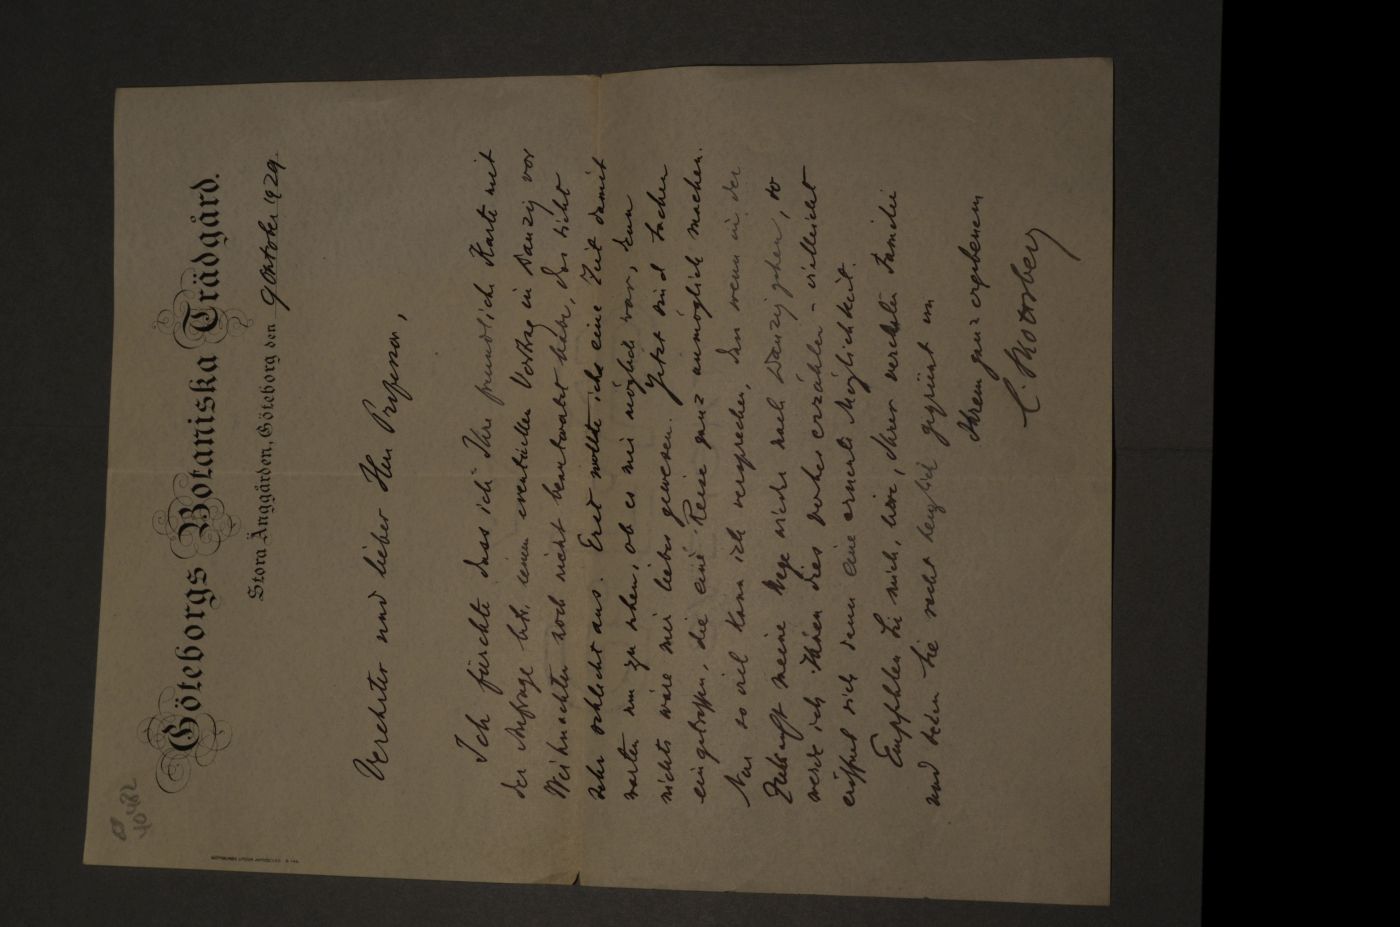 40482
Göteborgs Botaniska Trädgård.
Stora Änggården, Göteborg den 9 Oktober 1929.
Verehrter und lieber Herr Professor,
Ich fürchte dass ich Ihre freundliche Karte mit
der Anfrage betr. einen eventuellen Vortrag in Danzig vor
Weihnachten noch nicht beantwortet habe, das sieht
sehr schlecht aus. Erst wollte ich eine Zeit damit
warten um zu sehen, ob es mir möglich war, denn
nichts wäre mir lieber gewesen. Jetzt sind Sachen
eingetroffen, die eine Reise ganz unmöglich machen.
Nur so viel kann ich versprechen, dass wenn in der
Zukunft meine Wege wieder nach Danzig gehen, so
werde ich Ihnen dies vorher erzählen - vielleicht
eröffnet sich dann eine erneute Möglichkeit.
Empfehlen Sie mich, bitte, Ihrer verehrten Familie
und seien Sie recht herzlich gegrüsst von
Ihrem ganz ergebenem
C. Skottsberg